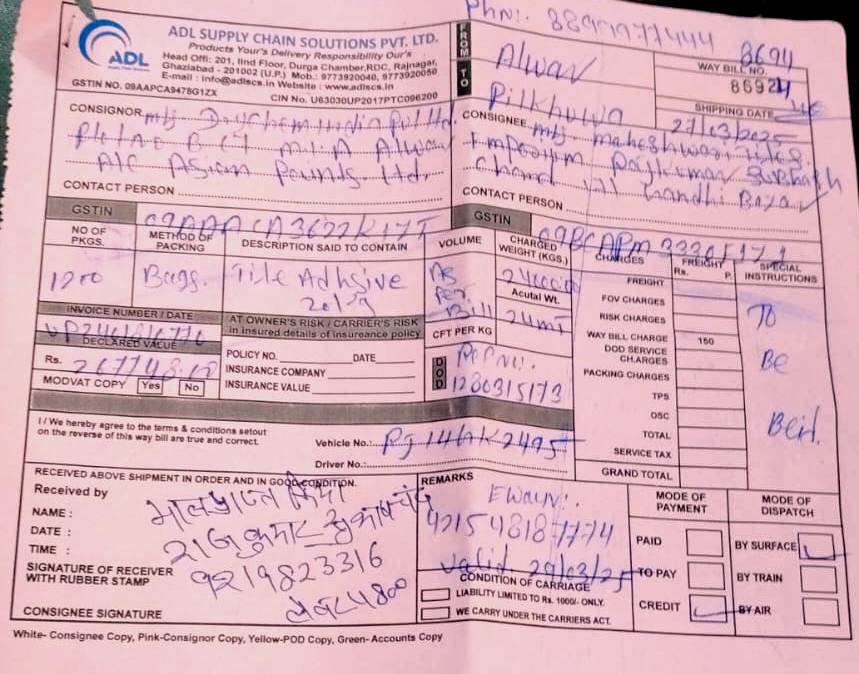 Phn!. 88947977444
ADL SUPPLY CHAIN SOLUTIONS PVT. LTD.
Products Your's Delivery Responsibility Our's
Head Offi: 201, IInd Floor, Durga Chamber,RDC, Rajnagar,
Ghaziabad - 201002 (U.P.) Mob.: 9773920040, 9773920050
E-mail : info@adlscs.in Website : www.adlscs.in
ADL
GSTIN NO. 09AAPCA9478G1ZX
CIN No. U63030UP2017PTC096200
FROM
Alwar
TO
Pilkhuwa
8694
WAY BILL NO.
86924
SHIPPING DATE
27/03/2025
CONSIGNOR
India Pvt Ltd.
M.I.A Alwar
A/C Asian Paints. Ltd.
CONTACT PERSON
CONSIGNEE
maheshwari Tiles
Emporium Rajkumar Subhash
Chand 171 Gandhi Bazar
CONTACT PERSON
GSTIN 09AAACA3622K1
GSTIN
NO OF PKGS.
METHOD OF PACKING
DESCRIPTION SAID TO CONTAIN
VOLUME
CHARGED WEIGHT (KGS.)
CHARGES
FREIGHT
Rs. P.
SPECIAL INSTRUCTIONS
1200
Bags.
Tile Adhsive
20kg
As
Per
Bill
24000.00
Acutal Wt.
24mt
CFT PER KG
FREIGHT
FOV CHARGES
RISK CHARGES
WAY BILL CHARGE 150
DOD SERVICE CHARGES
PACKING CHARGES
TPS
OSC
TOTAL
SERVICE TAX
GRAND TOTAL
TO
Be
INVOICE NUMBER / DATE
DECLARED VALUE
Rs. 267748
MODVAT COPY Yes No
AT OWNER'S RISK / CARRIER'S RISK
in insured details of insureance policy
POLICY NO. DATE
INSURANCE COMPANY
INSURANCE VALUE
DOD
1280315173
I / We hereby agree to the terms & conditions setout
on the reverse of this way bill are true and correct.
Vehicle No.: RJ14GK2495
Driver No.:
RECEIVED ABOVE SHIPMENT IN ORDER AND IN GOOD CONDITION.
Received by
NAME :
DATE :
TIME :
SIGNATURE OF RECEIVER
WITH RUBBER STAMP
CONSIGNEE SIGNATURE
राजकुमार
9219823316
REMARKS
4215 4818 7774
Valid. 29/03/25
CONDITION OF CARRIAGE
LIABILITY LIMITED TO Rs. 1000/- ONLY.
WE CARRY UNDER THE CARRIERS ACT.
MODE OF PAYMENT
PAID
TO PAY
CREDIT
MODE OF DISPATCH
BY SURFACE
BY TRAIN
BY AIR
White- Consignee Copy, Pink-Consignor Copy, Yellow-POD Copy, Green- Accounts Copy